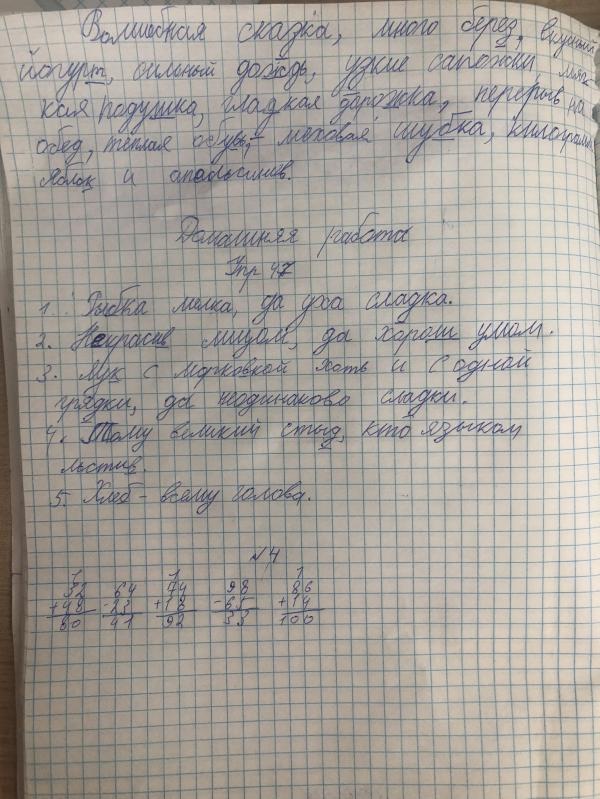 Волшебная сказка, много берез, вкусный
йогурт, сильный дождь, узкие сапожки, мяг
кая подушка, гладкая дорожка, перерыв на
обед, теплая обувь, меховая шубка, килограмм
яблок и апельсинов.
Домашняя работа
Упр 47
1. Рыбка мелка, да уха сладка.
2. Некрасив лицом, да хорош умом.
3. Лук с морковкой хоть и с одной
грядки, да неодинаково сладки.
4. Тому великий стыд, кто языком
льстив.
5. Хлеб - всему голова.
№4
1 1 1
32 64 74 98 86
+48 -23 +18 -65 +14
80 41 92 33 100